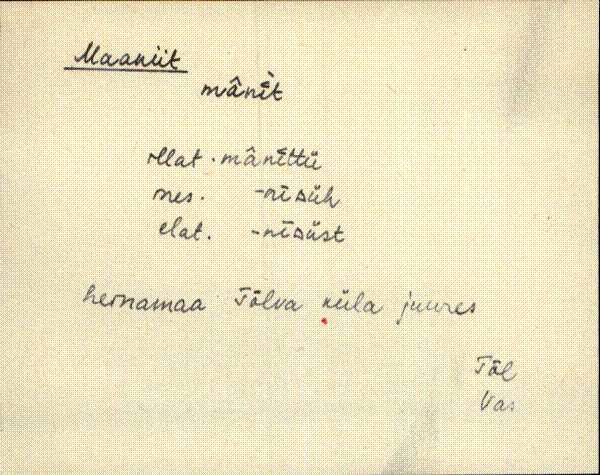 Maaniit
mânìt
illat. mânìttü
ines. -nīᴅüh
elat. -nīᴅüst
heinamaa Tõlva küla juures
Tõl
Vas